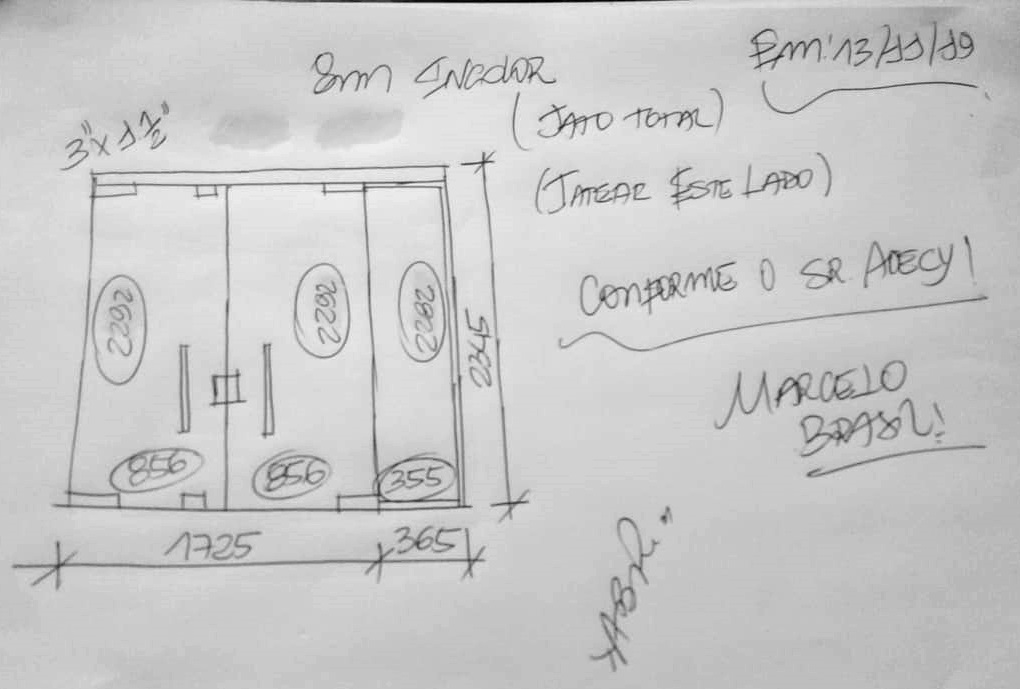 8mm INCOLOR
Em: 13/11/19
(JATO TOTAL)
3" x 1 ½"
(JATEAR ESTE LADO)
CONFORME O SR. ADECY!
2292
2292
2282
2345
MARCELO
BRASIL!
856
856
355
1725
365